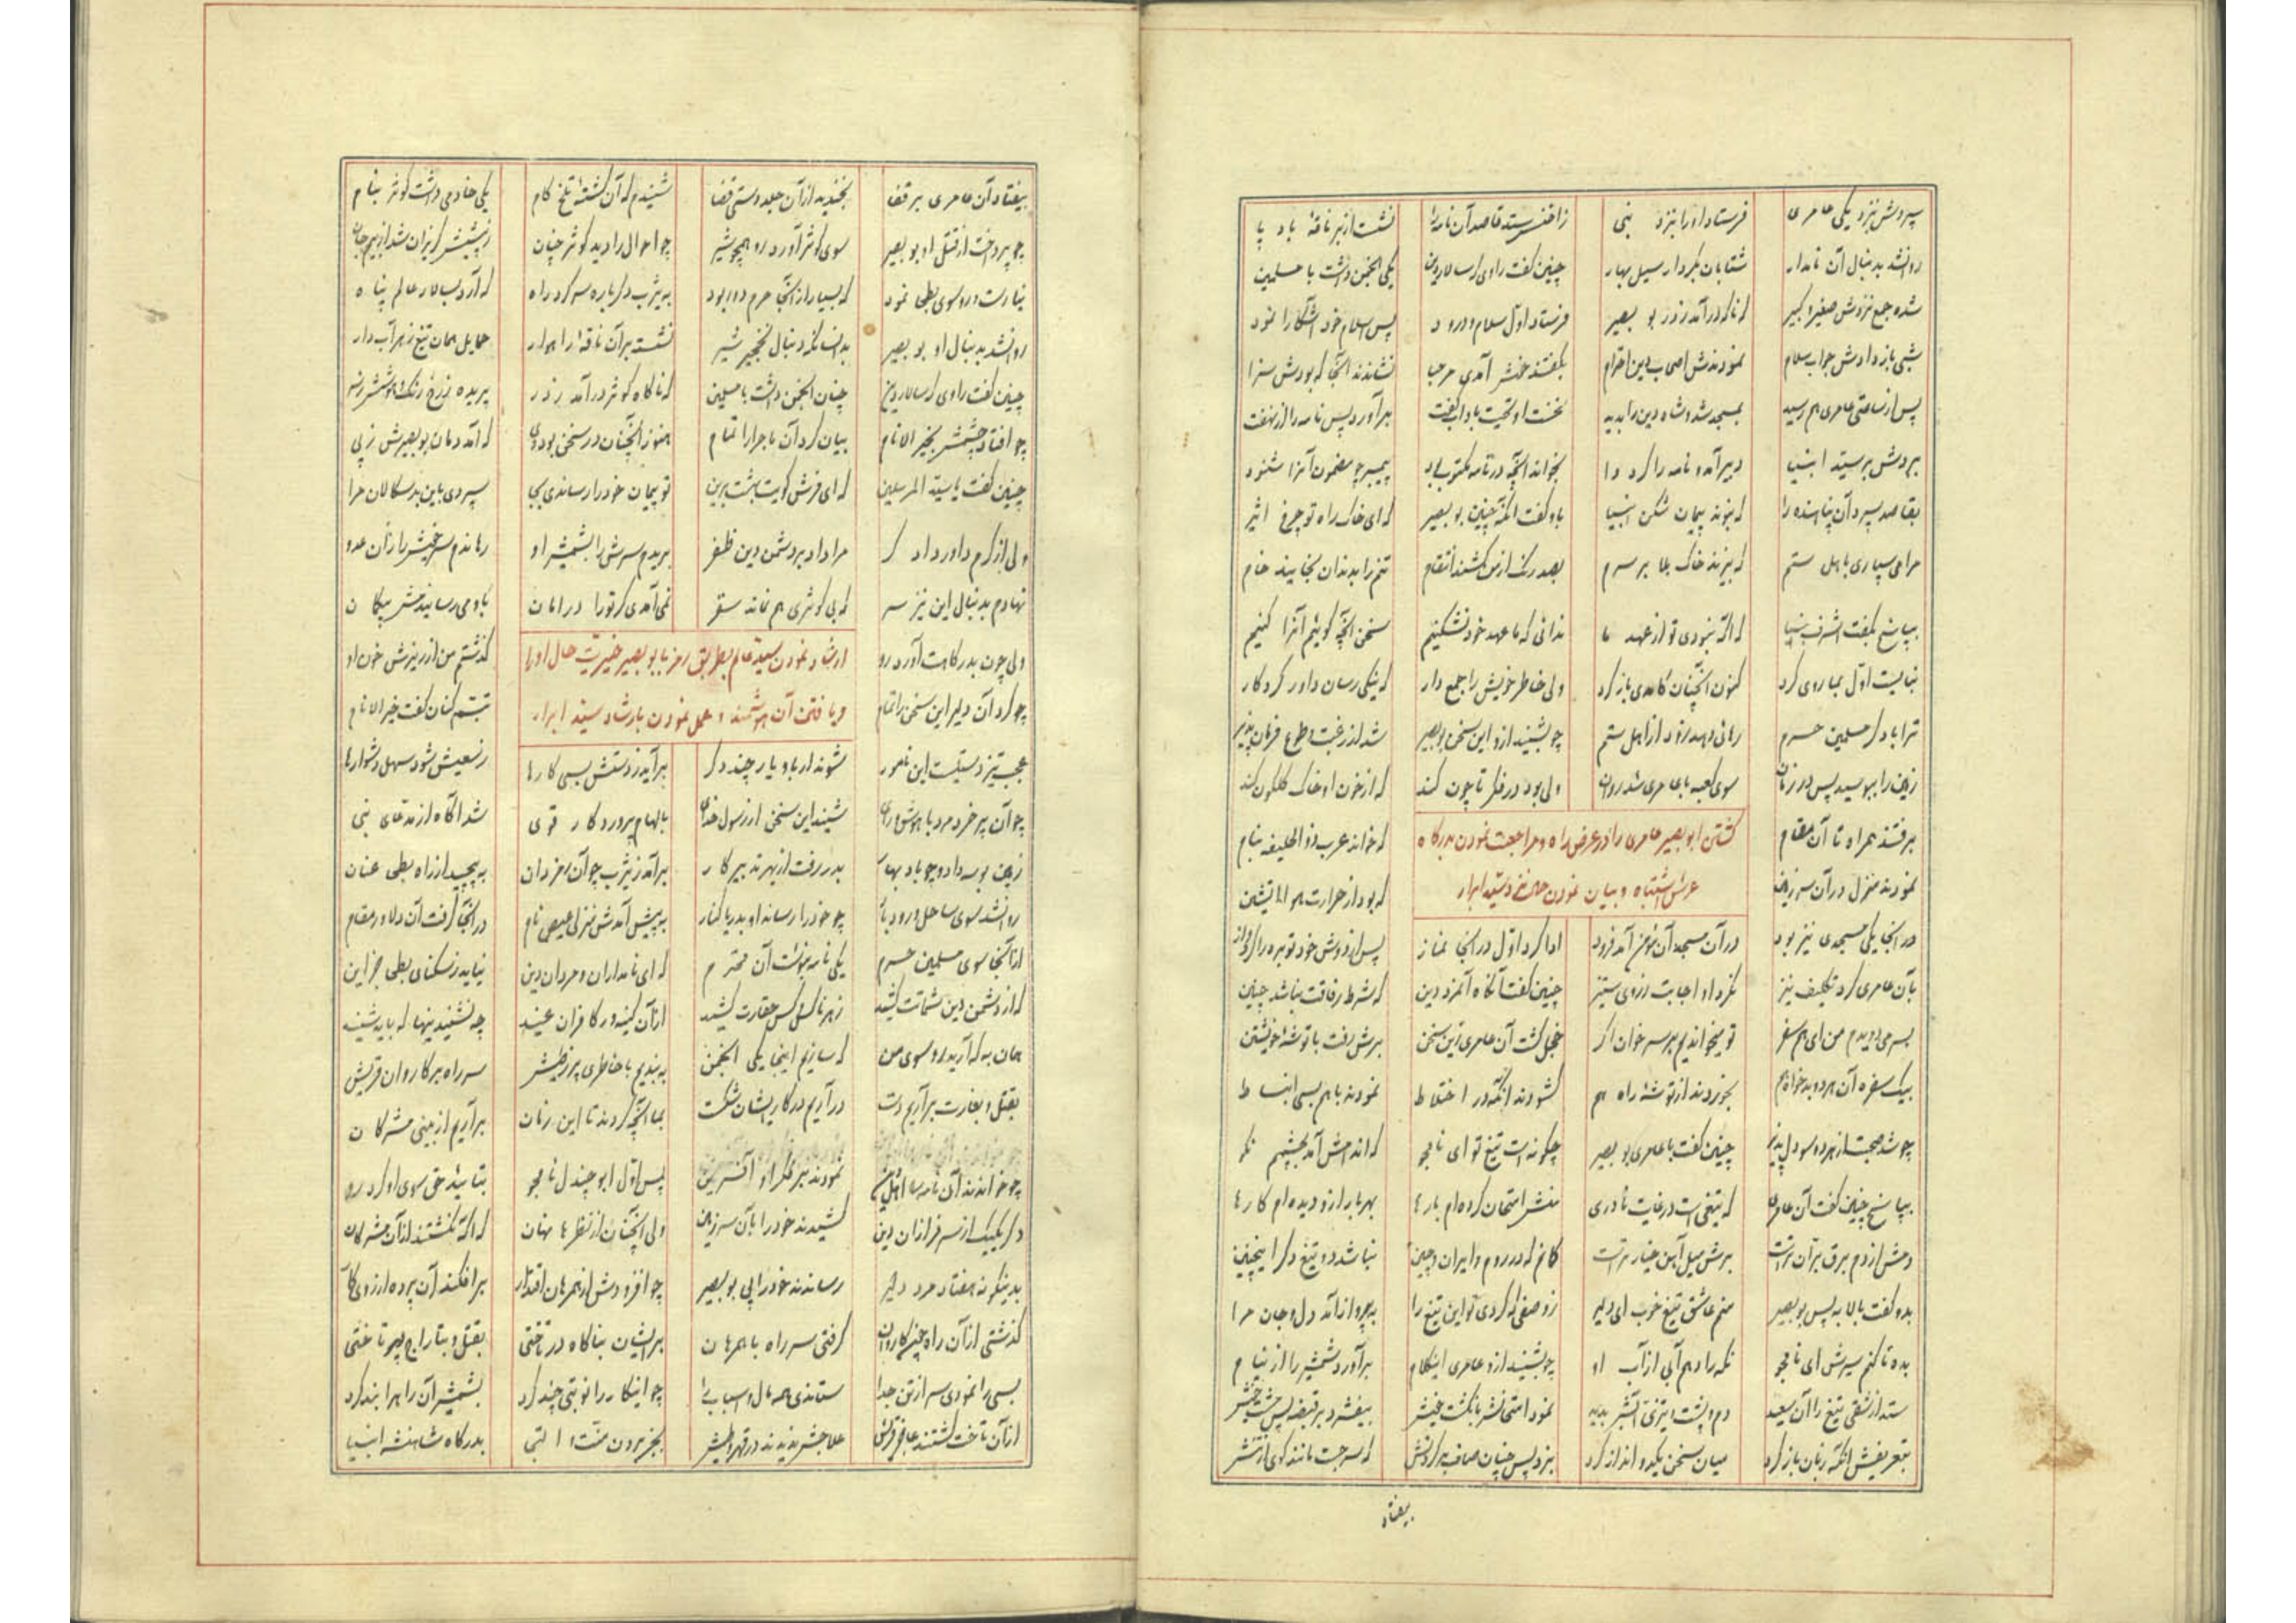 سپردش بنزد یکی عامری فرستاد او را بنزد نبی ز اخنس ستد قاصد آن نامه را نشست از بر ناقهٔ باد پا
روانشد بدنبال آن نامدار شتابان بکردار سیل بهار چنین گفت راوی که سالار دین یکی انجمن داشت با مسلمین
شده جمع نزدش صغیر و کبیر که ناگه درآمد ز در بو بصیر فرستاد اول سلام و درود پس اسلام خود آشکارا نمود
نبی باز دادش جواب سلام نمودندش اصحاب دین احترام بگفتند خوش آمدی مرحبا نشاندند آنجا که بودش سزا
پس از ساعتی عامری هم رسید بمسجد شد و شاه دین را بدید نخست او تحیت باداب گفت برآورد پس نامه را از نهفت
ببردش بر سید انبیا دبیر آمد و نامه را کرد وا بخواند آنچه در نامه مکتوب بد پیمبر چو مضمون آنرا شنود
بقاصد سپرد آن پناهنده را که نبود پیمان شکن انبیا باو گفت انگه چنین بو بصیر که ای خاک راه تو چرخ اثیر
مرا می سپاری باهل ستم که ریزند خاک بلا بر سرم بصد رنگ از من کشند انتقام تنم را بدندان بخایند خام
بپاسخ بگفت اشرف انبیا که اگه نبودی تو از عهد ما ندانی که ما عهد خود نشکنیم سخن آنچه گوئیم آنرا کنیم
نبایست اول بما روی کرد کنون آنچنان کامدی باز گرد ولی خاطر خویش را جمع دار که نیکی رسان داور کردگار
ترا با دگر مسلمین حرم رهائی دهد زود از اهل ستم چو بشنید ازو این سخن بو بصیر شد از رغبت و طوع فرمان پذیر
زمین را ببوسید پس در زمان سوی کعبه با عامری شد روان ولی بود در فکر تا چون کند که از خون او خاک گلگون کند
کشتن ابو بصیر عامری را در عرض راه و مراجعت نمودن بدرگاه
عرش اشتباه و بیان نمودن حال نزد سید ابرار
برفتند همراه تا آن مقام که خواند عرب ذوالحلیفه بنام
نمودند منزل در آن سرزمین که بود از حرارت هوا آتشین
در آنجا یکی مسجدی نیز بود در آن مسجد آن مؤمن آمد فرود ادا کرد اول در آنجا نماز پس از دوش خود توبره را کرد باز
بآن عامری کرد تکلیف نیز نکرد او اجابت ز روی ستیز چنین گفت آنگاه آنمرد دین که شرط رفاقت نباشد چنین
بسر می دویدم من ای هم سفر تو میخواندیم بر سر خوان اگر خجل گشت آن عامری زین سخن برش رفت با توشهٔ خویشتن
بیک سفره آن هر دو بدخواه هم بخوردند از توشه راه هم گشودند انگه در اختلاط نمودند با هم بسی انبساط
چو شد صحبت از هر دو سو دلپذیر چنین گفت با عامری بو بصیر چگونه است تیغ تو ای نامجو که اندامش آمد بچشمم نکو
بپاسخ چنین گفت آن عامری که تیغی است در غایت نادری منش امتحان کرده ام بارها بهر بار ازو دیده ام کارها
دمش از دم برق بران تر است برش میل آهن خیار تر است گمانم که در روم و ایران و چین نباشد دو تیغ دگر اینچنین
بدو گفت بالابه پس بو بصیر منم عاشق تیغ خوب ای دلیر ز وصفی که کردی تو این تیغ را بپرواز آمد دل و جان مرا
بده تا کنم سیرش ای نامجو نگه را دهم آبی از آب او چو بشنید ازو عامری اینکلام برآورد شمشیر را از نیام
ستد از شقی تیغ را آن سعید دم و پشت و تیزی آتش بدید نمود امتحانش بانگشت خویش بیفشرد بر قبضه پس مشت خویش
بتعریفش انگه زبان باز کرد میان سخن یکدو انداز کرد بزد پس چنان صاف بر گردنش که سر جست مانند گوی از تنش
بیفتاد
بیفتاد آن عامری بر قفا بخندید از آن جلد دستی قضا شنیدم که آن کشتهٔ تلخ کام یکی خادمی داشت کوثر بنام
چو پرداخت از قتل او بو بصیر سوی کوثر آورد رو همچو شیر چو احوال را دید کوثر چنان ز پیشش گریزان شد از بیم جان
نیارست رو سوی بطحی نمود که بسیار از آنجا حرم دور بود به یثرب دگر باره سر کرد راه که آرد بسالار عالم پناه
روانشد بدنبال او بو بصیر بدانسان که دنبال نخجیر شیر نشست بر آن ناقهٔ راهوار حمایل همان تیغ زهرآب دار
چنین گفت راوی که سالار دین چنان انجمن داشت با مسلمین که ناگاه کوثر درآمد ز در پریده ز رخ رنگ و هوشش ز سر
چو افتاد چشمش بخیر الانام بیان کرد آن ماجرا را تمام هنوز آنچنان در سخن بود وی که آمد دمان بو بصیرش ز پی
چنین گفت یا سید المرسلین که ای فرش کویت بهشت برین تو پیمان خود را رساندی بجا سپردی باین بدسگالان مرا
ولی از کرم داور دادگر مرا داد بر دشمن دین ظفر بریدم سرش را بشمشیر او رهاندم سر خویش را زان عدو
نهادم بدنبال این نیز سر که بی کوثری هم نماند سقر نمی آمدی گر تو را در امان باو می رسانید خوش پیکان
ولی چون بدرگاهت آورد رو گذشتم من از ریزش خون او
ارشاد نمودن سید عالم بطریق رمز با بو بصیر خیریت حال او را
و یافتن آن هوشمند و عمل نمودن بارشاد سید ابرار
چو کرد آن دلیر این سخن را تمام تبسم کنان گفت خیر الانام
عجب تیز دستیست این نامور شوند ار باو یار چند دگر برآید ز دستش بسی کارها ز سعیش شود سهل دشوارها
چو آن پر خرد مرد با هوش و رای شنید این سخن از رسول خدای بالهام پروردگار قوی شد آگاه از مدعای نبی
زمین بوسه داد و چو باد بهار بدر رفت از بهر تدبیر کار برآمد ز یثرب چو آن مرزدان به پیچید از راه بطحی عنان
روانشد سوی ساحل رود بار چو خود را رساند او بدریا کنار به پیش آمدش منزلی عیص نام در آنجا گرفت آن دلاور مقام
از آنجا سوی مسلمین حرم یکی نامه بنوشت آن محترم که ای نامداران و مردان دین نیاید ز سکنای بطحی جز این
که از دشمن دین شماتت کشید ز هر ناکس و کس حقارت کشید از آن کینه ور کافران عنید چه نشنیدنیها که باید شنید
همان به که آرید رو سوی من که سازیم اینجا یکی انجمن به بندیم با خاطری پر ز طیش سر راه بر کاروان قریش
بقتل و بغارت برآریم دست درآریم در کار ایشان شکست بما آنچه کردند تا این زمان برآریم از بینی مشرکان
چو خواندند آن نامه را اهل دین نمودند بر فکر او آفرین پس اول ابو چندل نامجو بتأیید حق سوی او کرد رو
دگر یکیک از سرفرازان دین کشیدند خود را بآن سرزمین ولی آنچنان از نظرها نهان که اگه نگشتند از آن مشرکان
بدینگونه هفتاد مرد دلیر رساندند خود را پی بو بصیر چو افزودش از همرهان اقتدار برافکند آن پرده از روی کار
گذشتی از آن راه چون کاروان گرفتی سر راه با همرهان بر ایشان بناگاه در تاختی بقتل و بتاراج پرداختی
بسی را نمودی سر از تن جدا ستاندی همه مال و اسباب را چو اینکار را نوبتی چند کرد بشمشیر آن راه را بند کرد
از آن تاخت گشتند عاجز قریش علاجش ندیدند در قهر و طیش بجز بردن منت و التجی بدرگاه شاهنشه انبیا